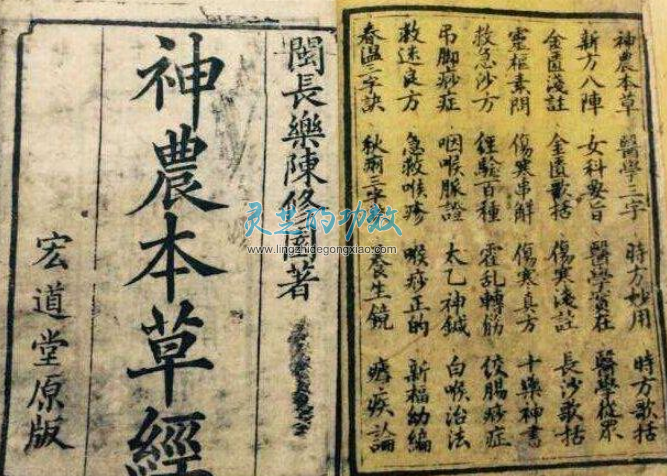 神農本草 醫學三字 時方妙用 時方歌括
新方八陣 女科要旨 醫學實在 醫學從眾
金匱淺註 金匱歌括 傷寒淺註 長沙歌括
靈樞素問 傷寒串解 傷寒真方 十藥神書
救急沙方 經驗百種 霍乱轉筋 絞腸痧症
吊脚痧症 咽喉脈證 太乙神鍼 白喉治法
救迷良方 急救喉疹 喉痧正的 新福幼編
春温三字訣 秋 三字 養生鏡 瘧疾論
閩長樂陳修園著
神農本草經
宏道堂原版
灵芝的功效
www.lingzhidegongxiao.com